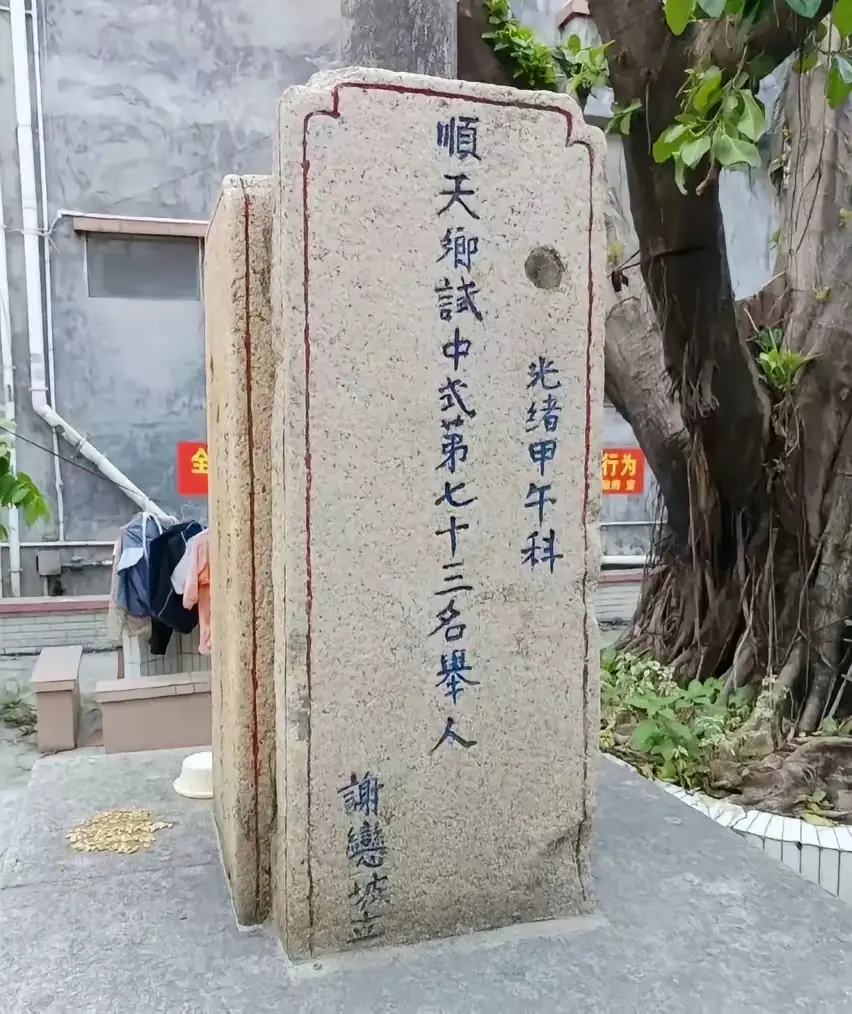 光绪甲午科
順天鄉試中式第七十三名舉人
謝鸞坡立
全
行为